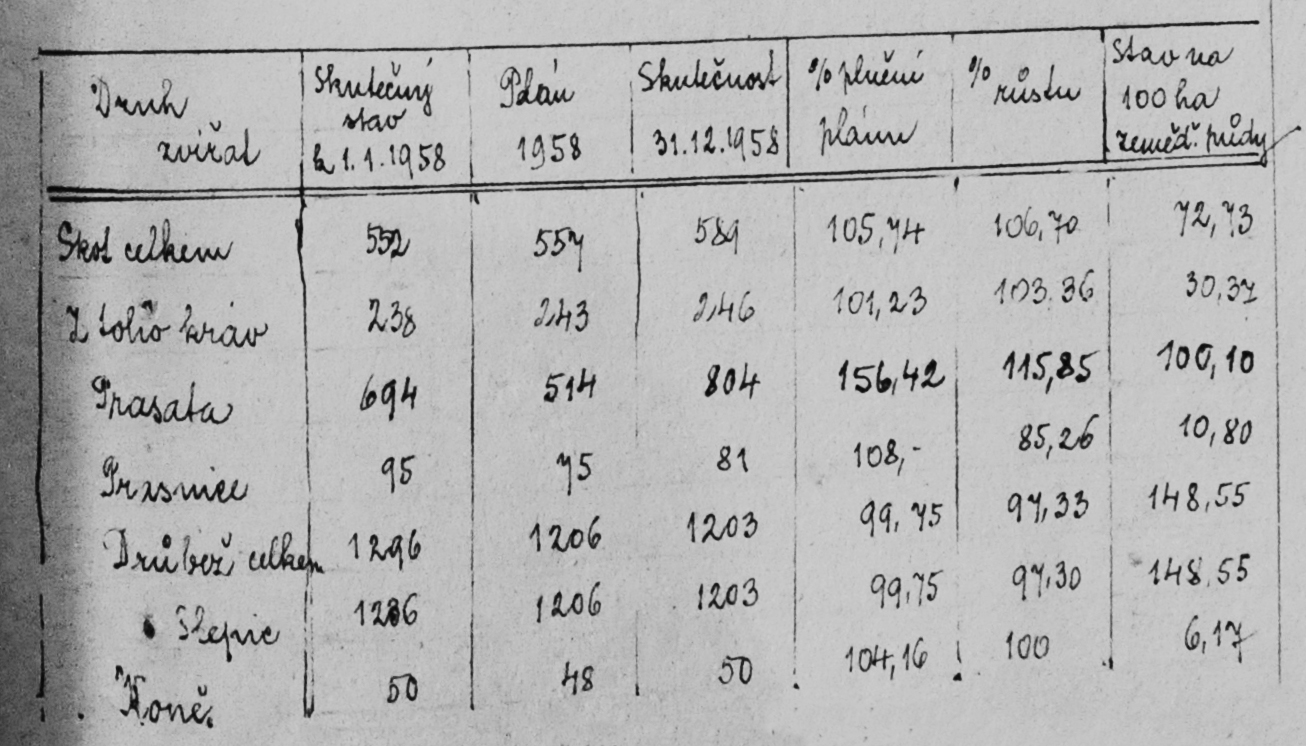 Druh zvířat Skutečný stav k 1.1.1958 Plán 1958 Skutečnost 31.12.1958 % plnění plánu % růstu Stav na 100 ha zeměď. půdy
Skot celkem 552 557 589 105,74 106,70 72,73
Z toho krav 238 243 246 101,23 103.36 30,37
Prasata 694 514 804 156,42 115,85 100,10
Prasnice 95 75 81 108,- 85,26 10,80
Drůbež celkem 1296 1206 1203 99,75 97,33 148,55
Slepic 1286 1206 1203 99,75 97,30 148,55
Koně 50 48 50 104,16 100 6,17